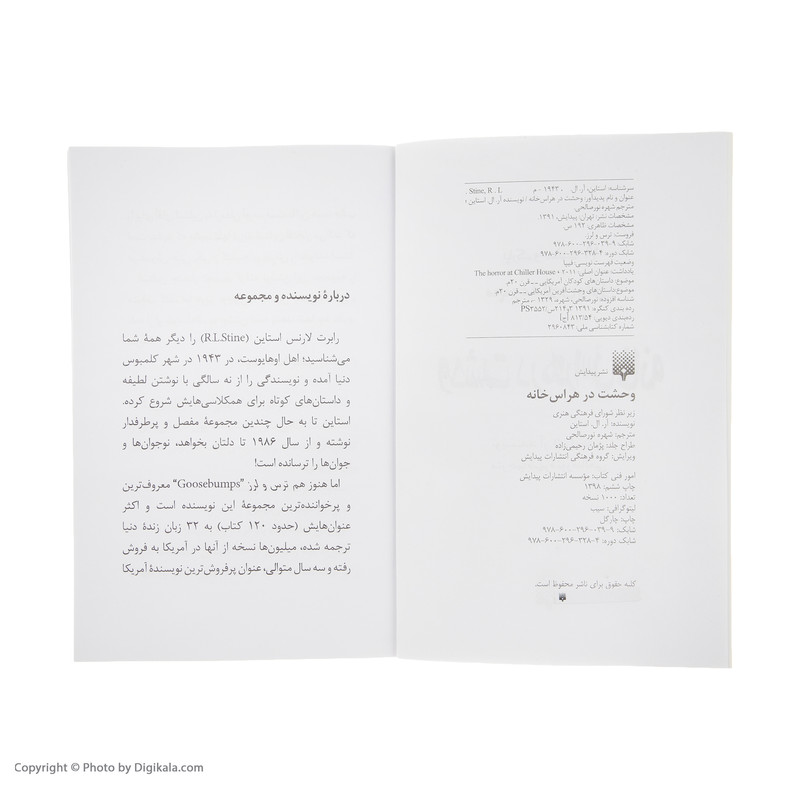 سرشناسه: استاین، آر. ال ، ۱۹۴۳ - م Stine, R . L .
عنوان و نام پدیدآور: وحشت در هراس‌خانه / نویسنده آر. ال. استاین ؛
مترجم شهره نورصالحی
مشخصات نشر: تهران: پیدایش، ۱۳۹۱.
مشخصات ظاهری: ۱۹۲ ص
فروست: ترس و لرز
شابک: ۹-۰۳۹-۲۹۶-۶۰۰-۹۷۸
شابک دوره: ۴-۳۲۸-۲۹۶-۶۰۰-۹۷۸
وضعیت فهرست نویسی: فیپا
یادداشت: عنوان اصلی: The horror at Chiller House، ۲۰۱۱
موضوع: داستان‌های کودکان آمریکایی -- قرن ۲۰م.
موضوع: داستان‌های وحشت‌آفرین آمریکایی -- قرن ۲۰م.
شناسه افزوده: نورصالحی، شهره، ۱۳۲۹ - مترجم
رده بندی کنگره: ۱۳۹۱ ۳و۲۱۴س/PS۳۵۵۲
رده‌بندی دیویی: ۸۱۳/۵۴ [ج]
شماره کتابشناسی ملی: ۲۹۶۰۸۴۳
نشر پیدایش
وحشت در هراس‌خانه
زیر نظر شورای فرهنگی هنری
نویسنده: آر. ال. استاین
مترجم: شهره نورصالحی
طراح جلد: پژمان رحیمی‌زاده
ویرایش: گروه فرهنگی انتشارات پیدایش
امور فنی کتاب: مؤسسه انتشارات پیدایش
چاپ ششم: ۱۳۹۸
تعداد: ۱۰۰۰ نسخه
لیتوگرافی: سیب
چاپ: چارگل
شابک: ۹-۰۳۹-۲۹۶-۶۰۰-۹۷۸
شابک دوره: ۴-۳۲۸-۲۹۶-۶۰۰-۹۷۸
کلیه حقوق برای ناشر محفوظ است.
دربارهٔ نویسنده و مجموعه
رابرت لارنس استاین (R.L.Stine) را دیگر همهٔ شما
می‌شناسید؛ اهل اوهایوست، در ۱۹۴۳ در شهر کلمبوس
دنیا آمده و نویسندگی را از نه سالگی با نوشتن لطیفه
و داستان‌های کوتاه برای همکلاسی‌هایش شروع کرده.
استاین تا به حال چندین مجموعهٔ مفصل و پرطرفدار
نوشته و از سال ۱۹۸۶ تا دلتان بخواهد، نوجوان‌ها و
جوان‌ها را ترسانده است!
اما هنوز هم ترس و لرز "Goosebumps" معروف‌ترین
و پرخواننده‌ترین مجموعهٔ این نویسنده است و اکثر
عنوان‌هایش (حدود ۱۲۰ کتاب) به ۳۲ زبان زندهٔ دنیا
ترجمه شده، میلیون‌ها نسخه از آنها در آمریکا به فروش
رفته و سه سال متوالی، عنوان پرفروش‌ترین نویسندهٔ آمریکا
Copyright © Photo by Digikala.com